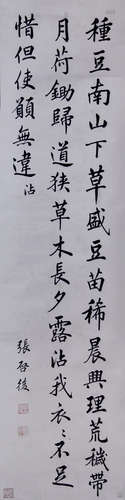 種豆南山下草盛豆苗稀晨興理荒穢帶
月荷鋤歸道狹草木長夕露沾我衣〻不足
惜但使願無違
沾
張啓後